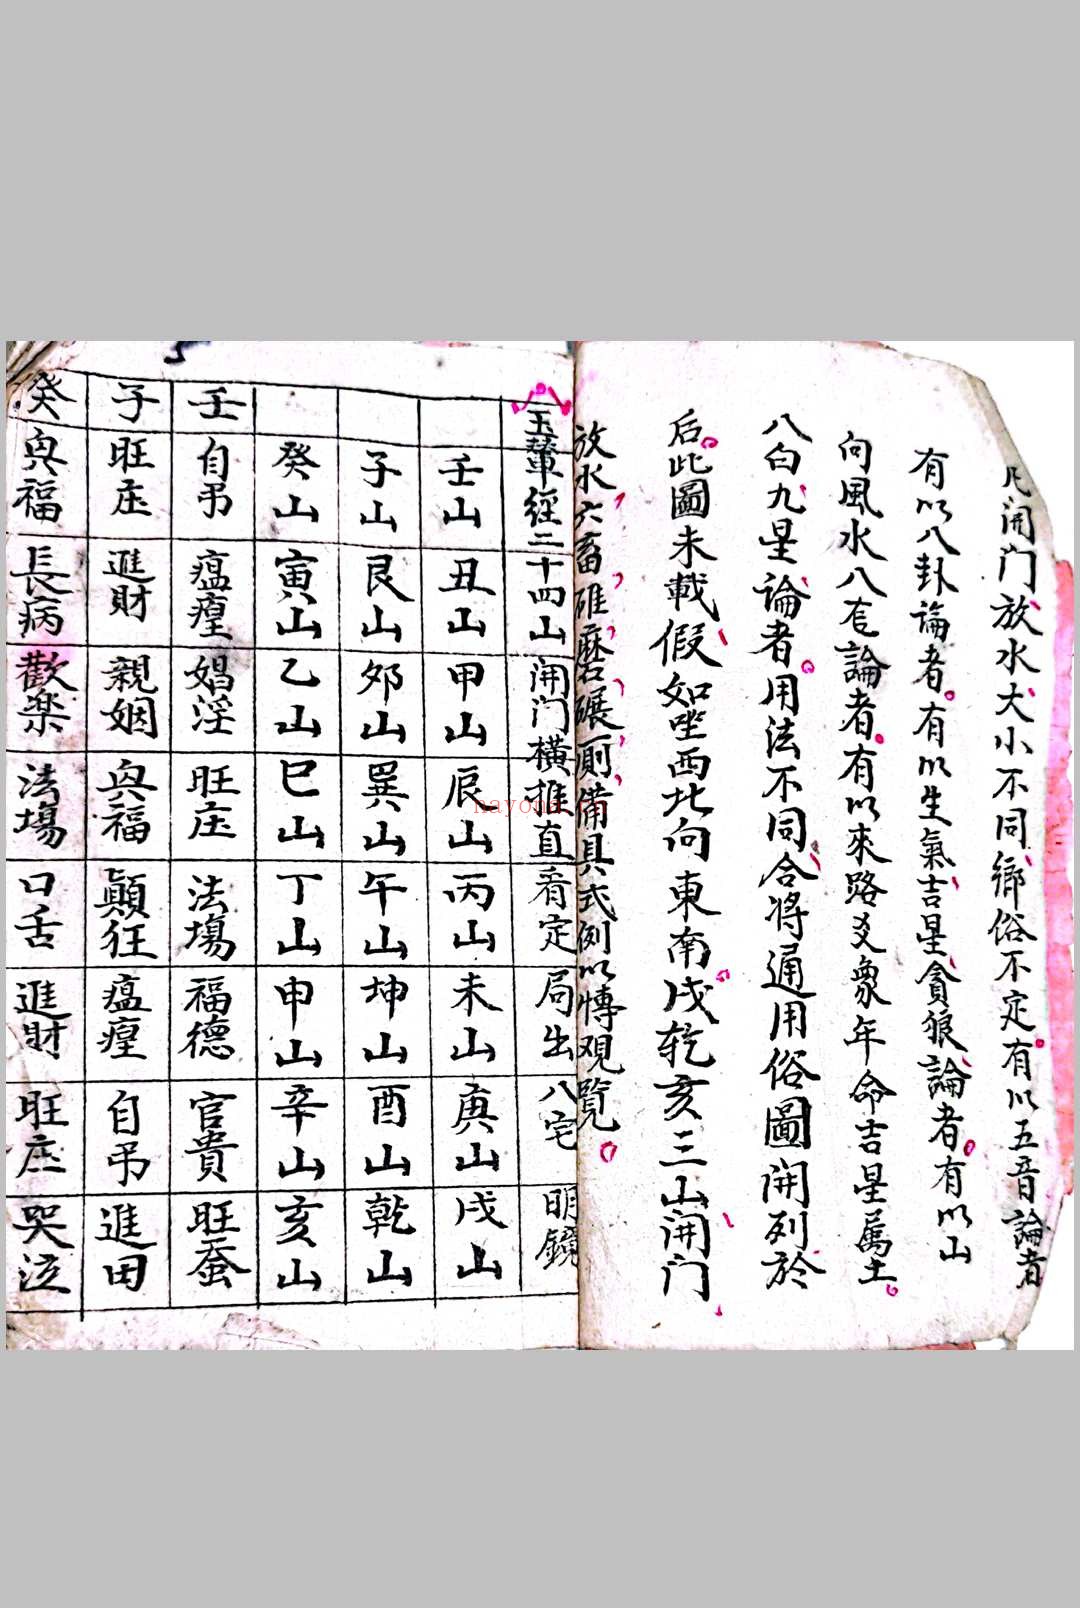 凡開门放水大小不同鄉俗不定有以五音論者
有以八卦論者有以生氣吉星貪狼論者有以山
向風水八宅論者有以來路爻象年命吉星属土
八白九星論者用法不同合将通用俗圖開列於
后此圖未載假如坐西北向東南戌乾亥三山開门
放水六畜碓磨碾厠備具式例以愽观覧
玉輦經二十四山開门橫推直看定局出八宅明鏡
壬山 丑山 甲山 辰山 丙山 未山 庚山 戌山
子山 艮山 夘山 巽山 午山 坤山 酉山 乾山
癸山 寅山 乙山 巳山 丁山 申山 辛山 亥山
壬 自吊 瘟瘟 娼淫 旺庄 法塲 福德 官貴 旺蚕
子 旺庄 進財 親姻 與福 顛狂 瘟瘟 自吊 進田
癸 與福 長病 歡楽 法塲 口舌 進財 旺庄 哭泣
nayona.cn